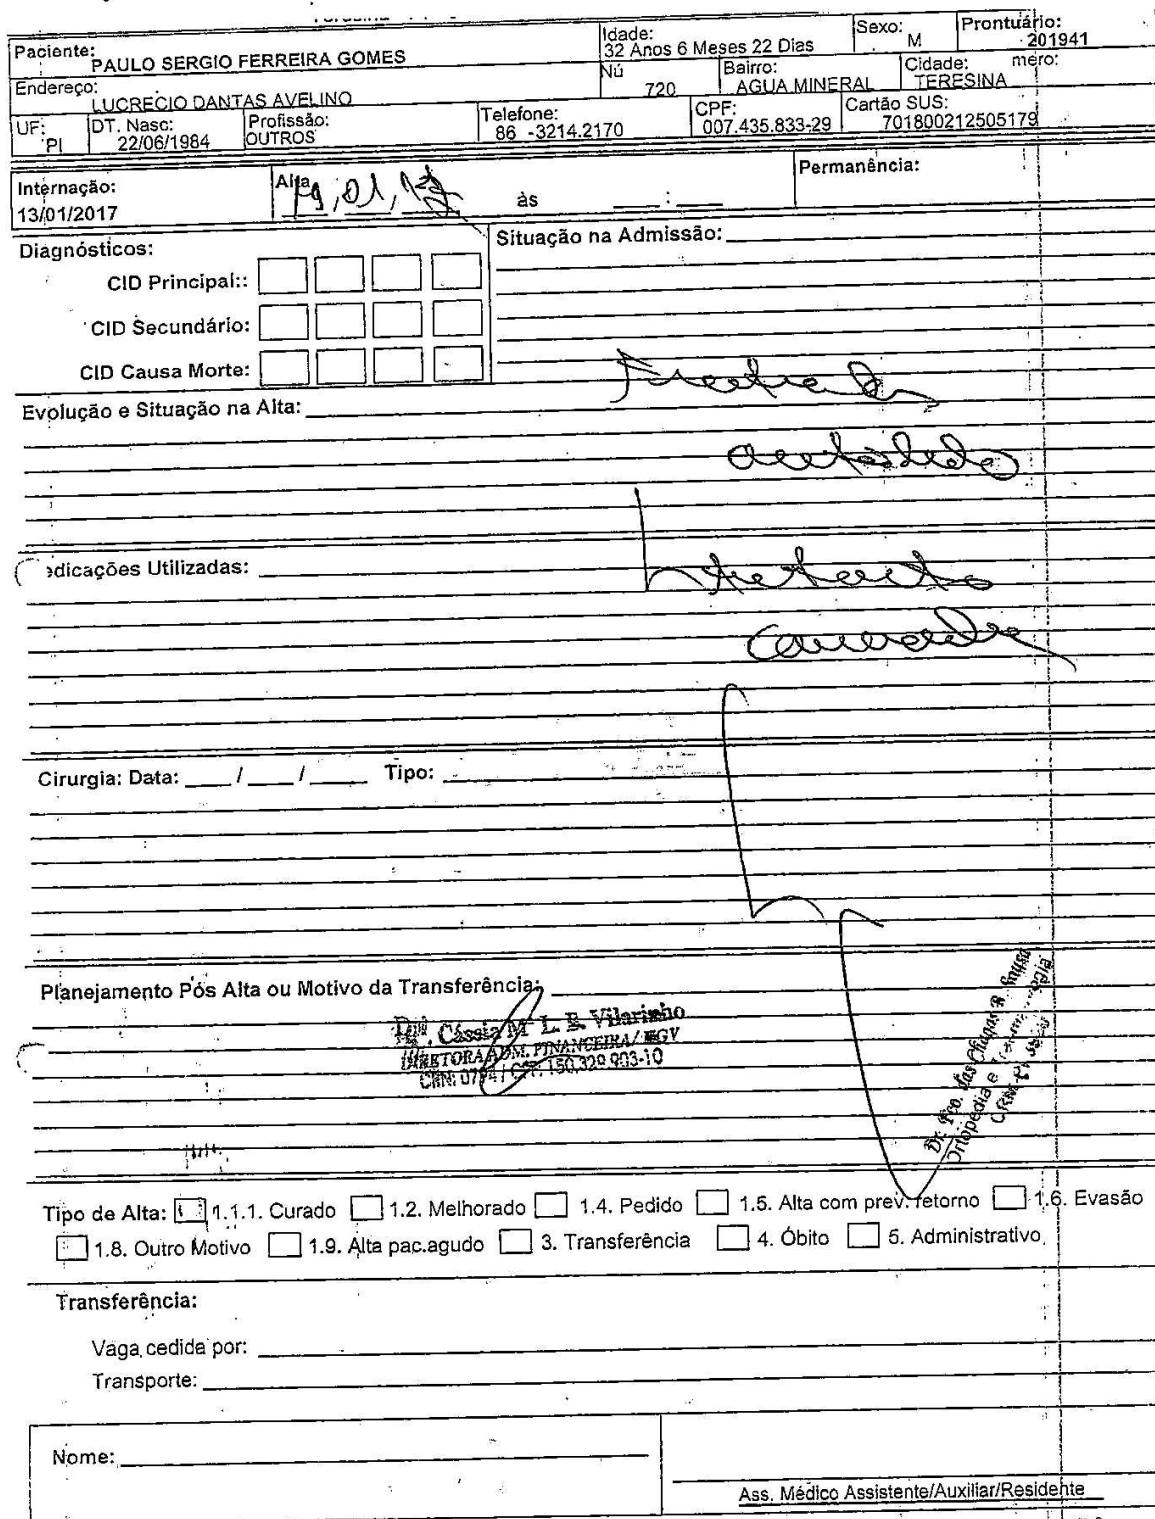 Paciente: PAULO SERGIO FERREIRA GOMES
Idade: 32 Anos 6 Meses 22 Dias
Sexo: M
Prontuário: 201941
Endereço: LUCRECIO DANTAS AVELINO
Nú mero: 720
Bairro: AGUA MINERAL
Cidade: TERESINA
UF: PI
DT. Nasc: 22/06/1984
Profissão: OUTROS
Telefone: 86 -3214.2170
CPF: 007.435.833-29
Cartão SUS: 701800212505179
Internação: 13/01/2017
Alta 19,01,17 às ___:___
Permanência:
Diagnósticos:
Situação na Admissão:
CID Principal::
CID Secundário:
CID Causa Morte:
Evolução e Situação na Alta:
edicações Utilizadas:
Tratamento
Cirurgia: Data: ___/___/___ Tipo:
Planejamento Pós Alta ou Motivo da Transferência:
Cássia M. L. B. Vilarinho
DIRETORA ADM. FINANCEIRA/ HGV
150.329.903-10
Dr. Fco. das Chagas
Ortopedia e
CRM-PI
Tipo de Alta: 1.1.1. Curado 1.2. Melhorado 1.4. Pedido 1.5. Alta com prev. retorno 1.6. Evasão
1.8. Outro Motivo 1.9. Alta pac.agudo 3. Transferência 4. Óbito 5. Administrativo
Transferência:
Vaga cedida por:
Transporte:
Nome:
Ass. Médico Assistente/Auxiliar/Residente